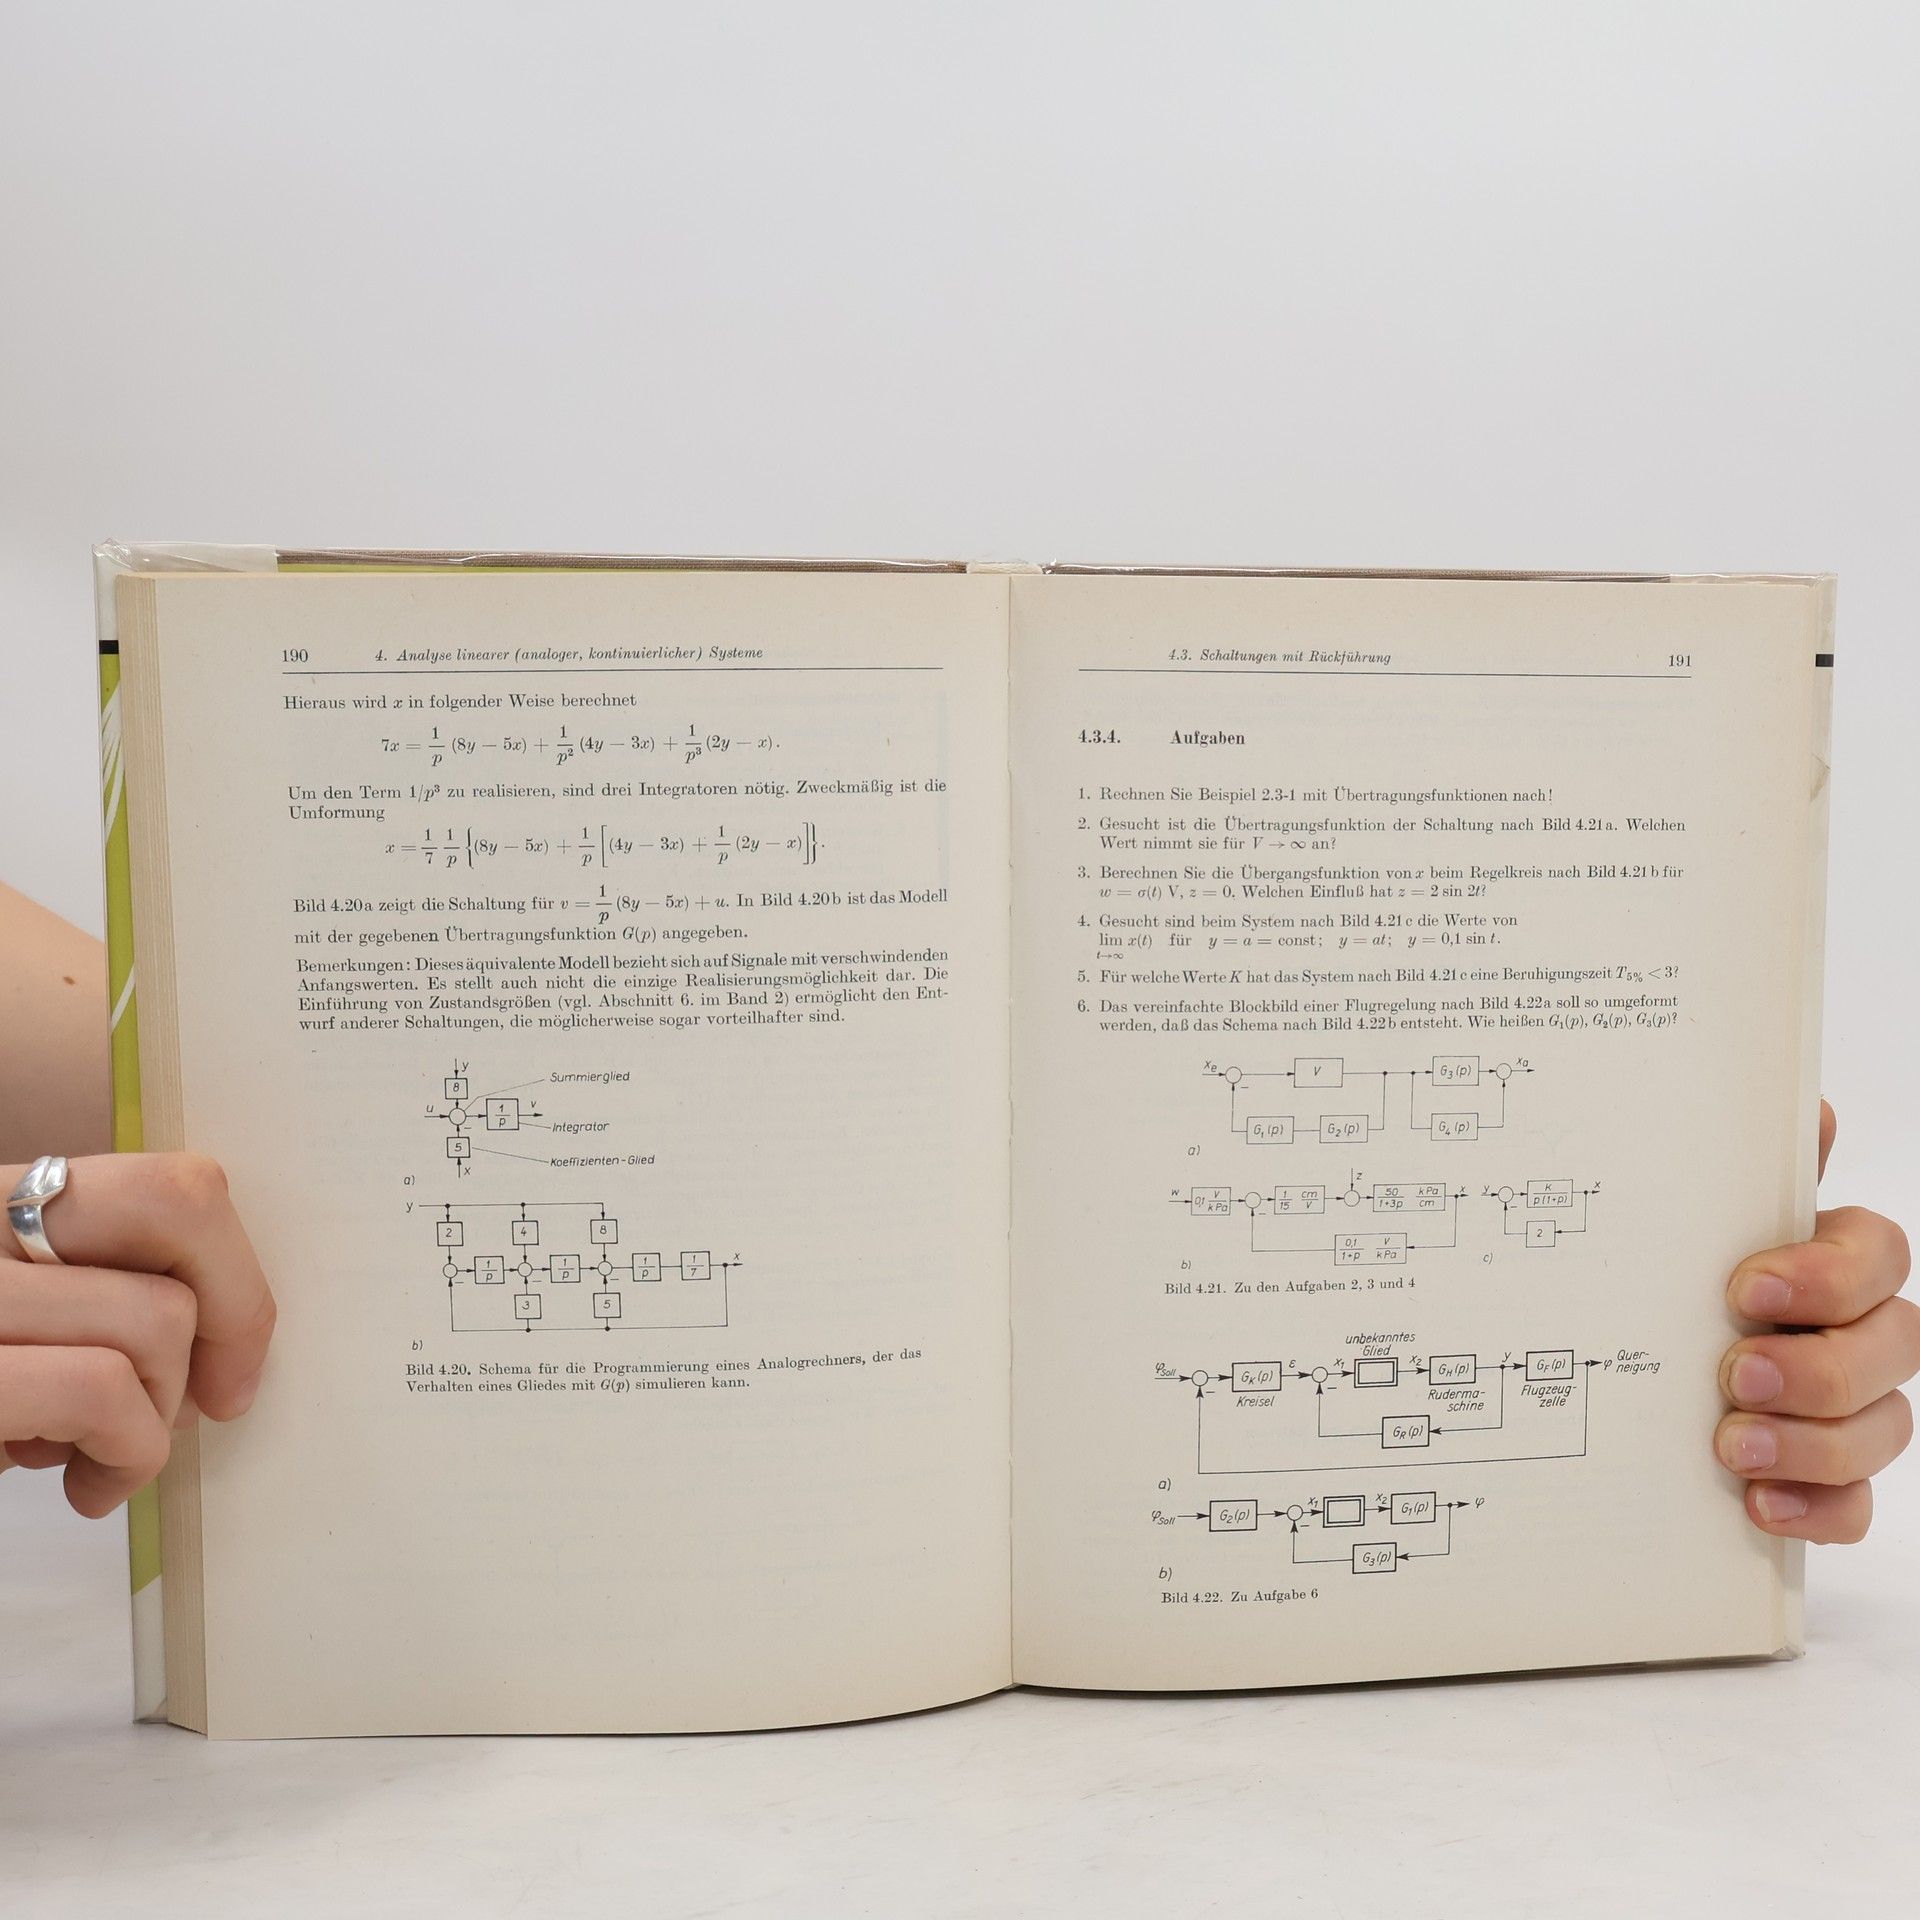 190 4. Analyse linearer (analoger, kontinuierlicher) Systeme
Hieraus wird x in folgender Weise berechnet
7x = 1/p (8y − 5x) + 1/p² (4y − 3x) + 1/p³ (2y − x).
Um den Term 1/p³ zu realisieren, sind drei Integratoren nötig. Zweckmäßig ist die
Umformung
x = 1/7 1/p {(8y − 5x) + 1/p [(4y − 3x) + 1/p (2y − x)]}.
Bild 4.20a zeigt die Schaltung für v = 1/p (8y − 5x) + u. In Bild 4.20b ist das Modell
mit der gegebenen Übertragungsfunktion G(p) angegeben.
Bemerkungen: Dieses äquivalente Modell bezieht sich auf Signale mit verschwindenden
Anfangswerten. Es stellt auch nicht die einzige Realisierungsmöglichkeit dar. Die
Einführung von Zustandsgrößen (vgl. Abschnitt 6. im Band 2) ermöglicht den Ent-
wurf anderer Schaltungen, die möglicherweise sogar vorteilhafter sind.
y
8 Summierglied
u − 1/p v
Integrator
5
Koeffizienten-Glied
x
a)
y
2 4 8
− 1/p − 1/p − 1/p 1/7 x
3 5
b)
Bild 4.20. Schema für die Programmierung eines Analogrechners, der das
Verhalten eines Gliedes mit G(p) simulieren kann.
4.3. Schaltungen mit Rückführung 191
4.3.4. Aufgaben
1. Rechnen Sie Beispiel 2.3-1 mit Übertragungsfunktionen nach!
2. Gesucht ist die Übertragungsfunktion der Schaltung nach Bild 4.21a. Welchen
Wert nimmt sie für V → ∞ an?
3. Berechnen Sie die Übergangsfunktion von x beim Regelkreis nach Bild 4.21b für
w = σ(t) V, z = 0. Welchen Einfluß hat z = 2 sin 2t?
4. Gesucht sind beim System nach Bild 4.21c die Werte von
lim x(t) für y = a = const; y = at; y = 0,1 sin t.
t→∞
5. Für welche Werte K hat das System nach Bild 4.21c eine Beruhigungszeit T5% < 3?
6. Das vereinfachte Blockbild einer Flugregelung nach Bild 4.22a soll so umgeformt
werden, daß das Schema nach Bild 4.22b entsteht. Wie heißen G₁(p), G₂(p), G₃(p)?
xe − V G₃(p) xa
G₁(p) G₂(p) G₄(p)
a)
w 0,1 V/kPa − 1/15 cm/V z 50/1+3p kPa/cm x y − K/p(1+p) x
0,1/1+p V/kPa 2
b) c)
Bild 4.21. Zu den Aufgaben 2, 3 und 4
unbekanntes
Glied
φSoll − GK(p) ε − x₁ x₂ GH(p) y GF(p) φ Quer-
neigung
Kreisel Ruderma-
schine Flugzeug-
zelle
GR(p)
a)
φSoll G₂(p) − x₁ x₂ G₁(p) φ
G₃(p)
b)
Bild 4.22. Zu Aufgabe 6